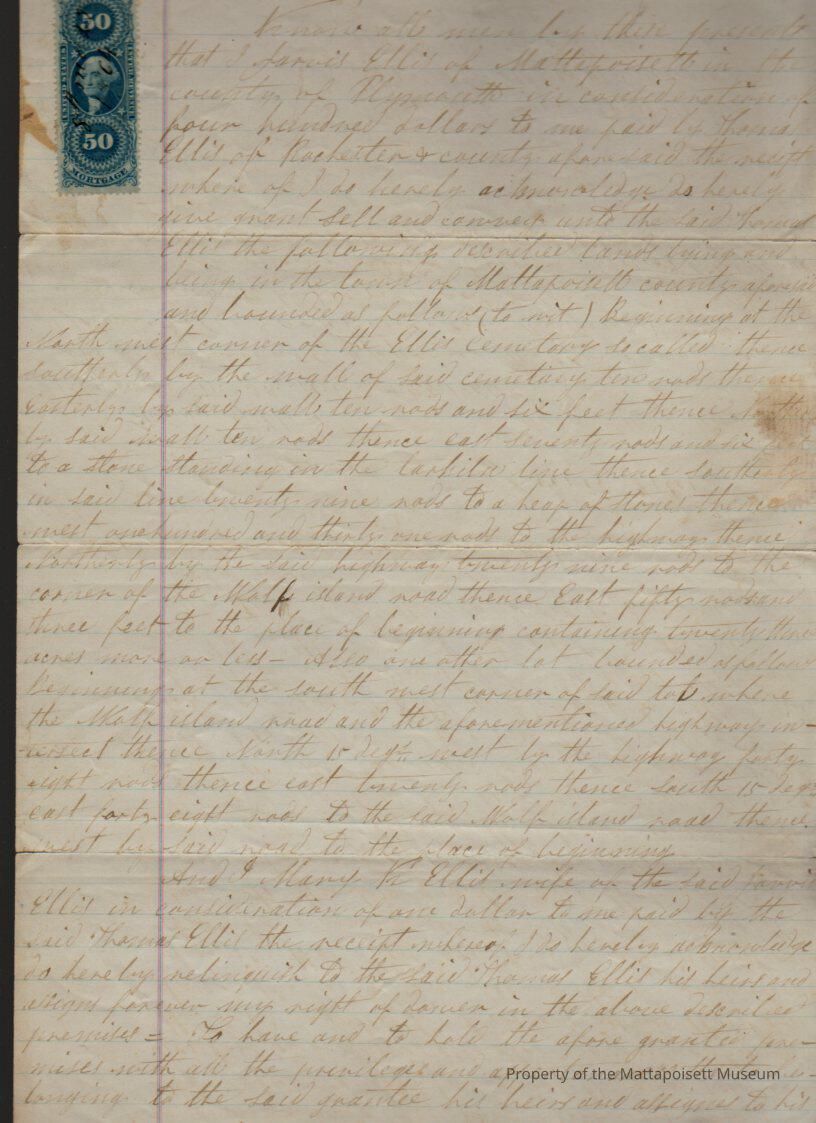 50
50
MORTGAGE
Know all men by these presents
that I Jarvis Ellis of Mattapoisett in the
county of Plymouth in consideration of
four hundred dollars to me paid by Thomas
Ellis of Rochester & county aforesaid the receipt
where of I do hereby acknowledge do hereby
give grant sell and convey unto the said Thomas
Ellis the following described lands being and
being in the town of Mattapoisett county aforesaid
and bounded as follows (to wit) Beginning at the
North west corner of the Ellis Cemetory so called thence
southerly by the wall of said cemetary ten rods thence
Easterly by said wall ten rods and six feet thence
by said wall ten rods thence east seventy rods and six feet
to a stone standing in the line thence southerly
in said line twenty nine rods to a heap of stones thence
west one hundred and thirty one rods to the highway thence
Northerly by the said highway twenty nine rods to the
corner of the Wolf island road thence East fifty rods and
three feet to the place of beginning containing twenty three
acres more or less - Also one other lot bounded as follows
Beginning at the south west corner of said lot where
the Wolf island road and the aforementioned highway in-
tersect thence North 15 degs. west by the highway forty
eight rods thence east twenty rods thence south 15 degs
east forty eight rods to the said Wolf island road thence
west by said road to the place of beginning
And I Mary Ellis wife of the said Jarvis
Ellis in consideration of one dollar to me paid by the
said Thomas Ellis the receipt whereof I do hereby acknowledge
do hereby relinquish to the said Thomas Ellis his heirs and
assigns forever my right of dower in the above described
premises = To have and to hold the afore granted pre-
mises with all the privileges and be-
longing to the said grantee his heirs and assignes to his
Property of the Mattapoisett Museum